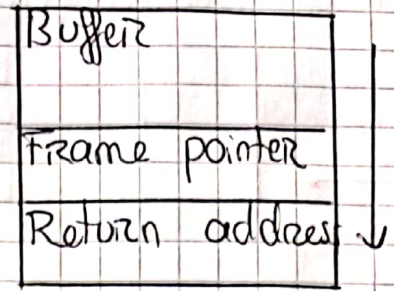 Buffer
Frame pointer
Return address